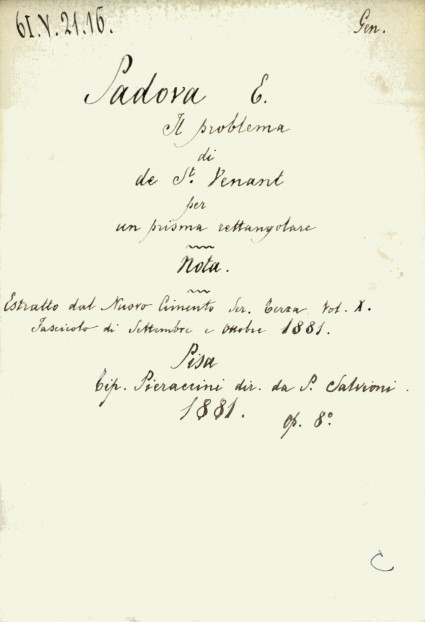 61.V.21.16.
Gen.
Padova E.
Il problema
di
de St. Venant
per
un prisma rettangolare
Nota.
Estratto dal Nuovo Cimento Ser. Terza Vol. X.
Fascicolo di Settembre e Ottobre 1881.
Pisa
Tip. Pieraccini dir. da P. Salvioni.
1881.
op. 8º
C